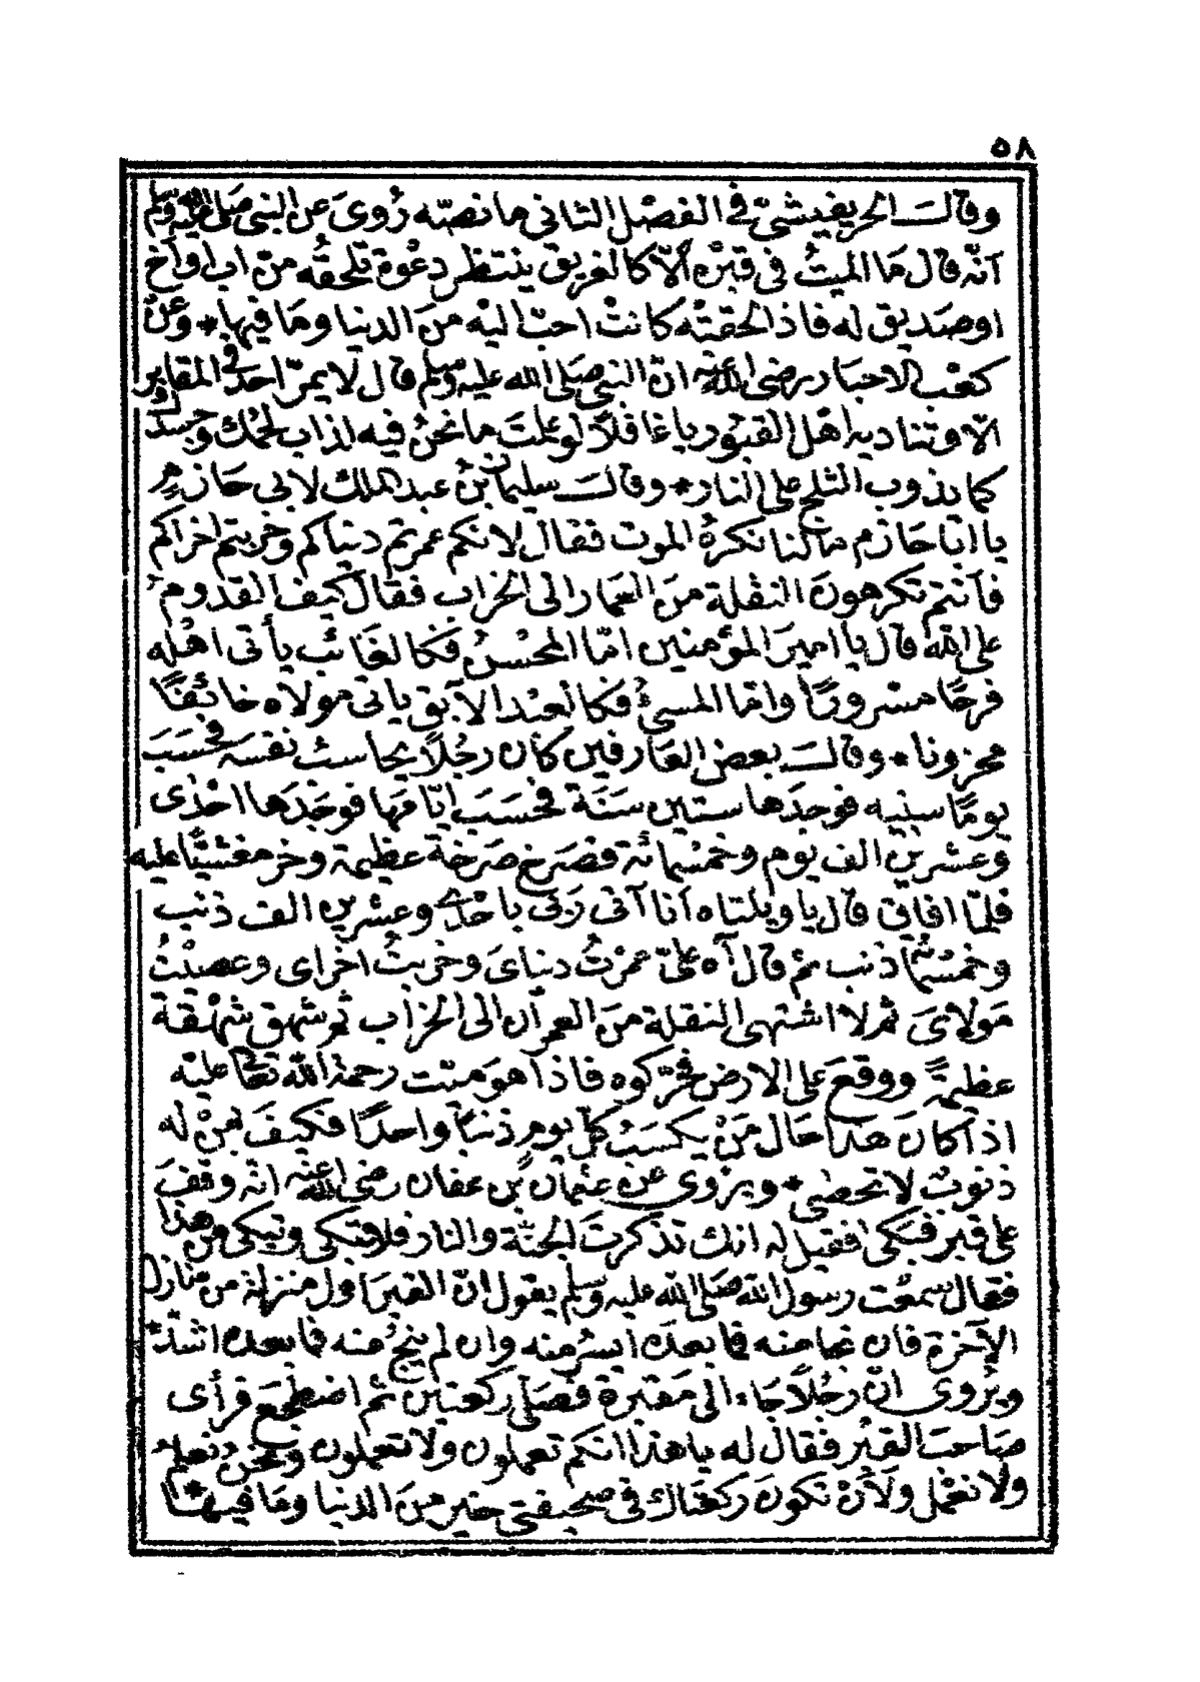 ٥٨
وقال الحريفيشي في الفصل الثاني ما نصّه رُوىَ عن النبى صلى الله عليه وسلم
انّه قال مَا الميتُ فى قبرْه الّا كالغريق ينتظر دعْوة تلحقُه منْ اب او أخ
او صَديق له فاذا لحقتْه كانتْ احبّ اليْه منَ الدنيا ومَا فيها * وعنْ
كعْب الاحبَار رضى الله عنه انّ النبى صَلى الله عليه وسلم قال لَا يمرّ احَد فى المقابر
الّا وتناديه اهْل القبُور يا غافلًا لو علمتَ ما نحنُ فيه لذاب لحمْك وجسدك
كما يذوب الثلج على النار * وقال سليمان بنُ عبد الملك لابى حَازم
يا ابَا حَازم ما لنا نكرهُ الموت فقال لانكم عمرتم دنياكم وخربتم اخراكم
فأنتم تكرهونَ النقْلة منَ العمار الى الخراب فقال كيف القدوم
على الله قال يا اميرَ المؤمنين امّا المحْسنُ فكالغَائب يأتى اهْله
فرحًا مسْرورًا وامّا المسىُ فكالعبْد الآبق ياتى مولاه خائفًا
محزونا * وقال بعض العَارفين كان رجُلًا يحاسبُ نفسَه فحسَبَ
يومًا سنيه فوجدَها ستين سَنَة فحسَبَ ايّامَها فوجَدَها احْدى
وعشرين الف يوم وخمْسمائة فصَرخ صَرخة عظيمة وخر مغشيًّا عليه
فلمّا افاق قال يا ويلتاه أنا آتى رَبى باحْدى وعشرين الف ذنب
وخمْسمائة ذنب ثم قال آه علىّ عمرْتُ دنياىَ وخربتُ اخراى وعصيْتُ
مَولاىَ ثم لا اشتهى النقلة منَ العمرآن الى الخراب ثم شهق شهْقة
عظيمةً ووقعَ على الارض فحرّكوه فاذا هو ميّت رحمه الله تعالى عليْه
اذا كانَ هذا حَال منْ يكسَبُ كلّ يوم ذنبًا واحدًا فكيفَ بمنْ له
ذنوبٌ لا تحصَى * ويرْوى عن عثمان بْن عفان رضى الله عنه انّه وقفَ
على قبر فبكى فقيل له انك تذكرتَ الجنّة والنار فلا تبكى وتبكى من هذا
فقال سمعْت رسول الله صَلى الله عليه وسلم يقول انّ القبرَ اول منزلة من منازل
الآخرة فان نجا منه فما بعدَه ايسرُ منه وان لم ينجُ منه فما بعده اشدّ *
ويرُوى انّ رجُلًا جَاء الى مَقبرة فصَلى ركعتين ثم اضطجعَ فرأى
صَاحبَ القبْر فقال له يا هذا انكم تعملون ولا تعلمون ونحنُ نعلم
ولا نعْمل ولَأنْ تكونَ ركعتاك فى صحيفتى خير منَ الدنيا ومَا فيهَا *